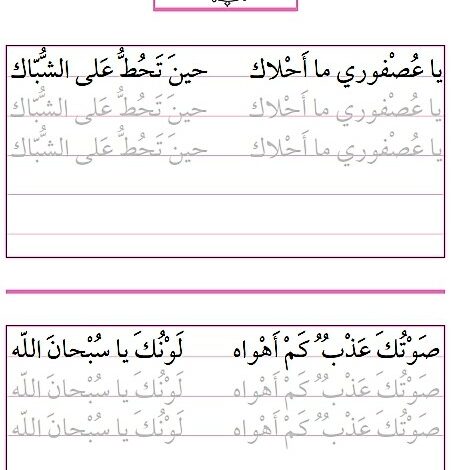 يا عُصْفوري ما أَحْلاك حينَ تَحُطُّ عَلى الشُّبّاك
يا عُصْفوري ما أَحْلاك حينَ تَحُطُّ عَلى الشُّبّاك
يا عُصْفوري ما أَحْلاك حينَ تَحُطُّ عَلى الشُّبّاك
صَوْتُكَ عَذْبٌ كَمْ أَهْواه لَوْنُكَ يا سُبْحانَ اللّه
صَوْتُكَ عَذْبٌ كَمْ أَهْواه لَوْنُكَ يا سُبْحانَ اللّه
صَوْتُكَ عَذْبٌ كَمْ أَهْواه لَوْنُكَ يا سُبْحانَ اللّه